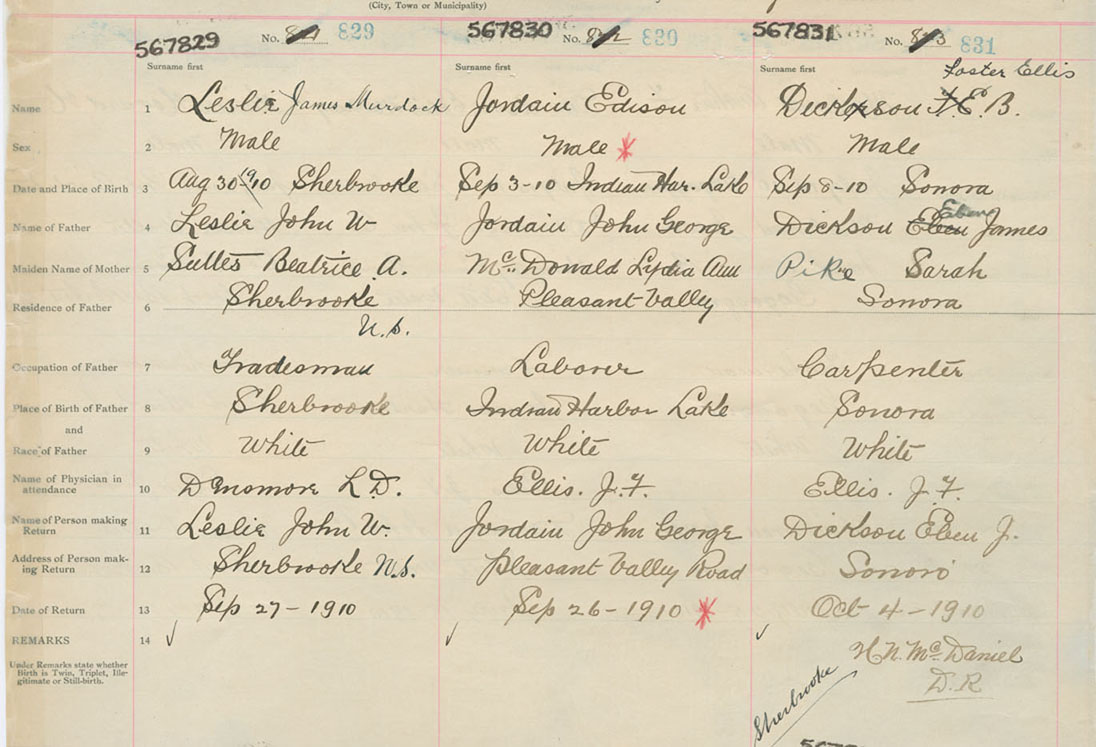 (City, Town or Municipality)
567829 No. 829 567830 No. 830 567831 No. 831
Surname first Surname first Surname first Foster Ellis
Name 1 Leslie James Murdock Jordain Edison Dickson F. E. B.
Sex 2 Male Male Male
Date and Place of Birth 3 Aug 30 1910 Sherbrooke Sep 3-10 Indian Har. Lake Sep 8-10 Sonora
Name of Father 4 Leslie John W Jordain John George Dickson Eben James
Maiden Name of Mother 5 Beatrice A. Mc. Donald Lydia Ann Pike Sarah
Residence of Father 6 Sherbrooke Pleasant Valley Sonora
N.S.
Occupation of Father 7 Tradesman Laborer Carpenter
Place of Birth of Father 8 Sherbrooke Indian Harbor Lake Sonora
and
Race of Father 9 White White White
Name of Physician in
attendance 10 Densmore L.D. Ellis. J.F. Ellis. J.F.
Name of Person making
Return 11 Leslie John W. Jordain John George Dickson Eben J.
Address of Person mak-
ing Return 12 Sherbrooke N.S. Pleasant Valley Road Sonora
Date of Return 13 Sep 27-1910 Sep 26-1910 Oct 4-1910
REMARKS 14
Under Remarks state whether
Birth is Twin, Triplet, Ille-
gitimate or Still-birth.
H.N. Mc. Daniel
D.R
Sherbrooke